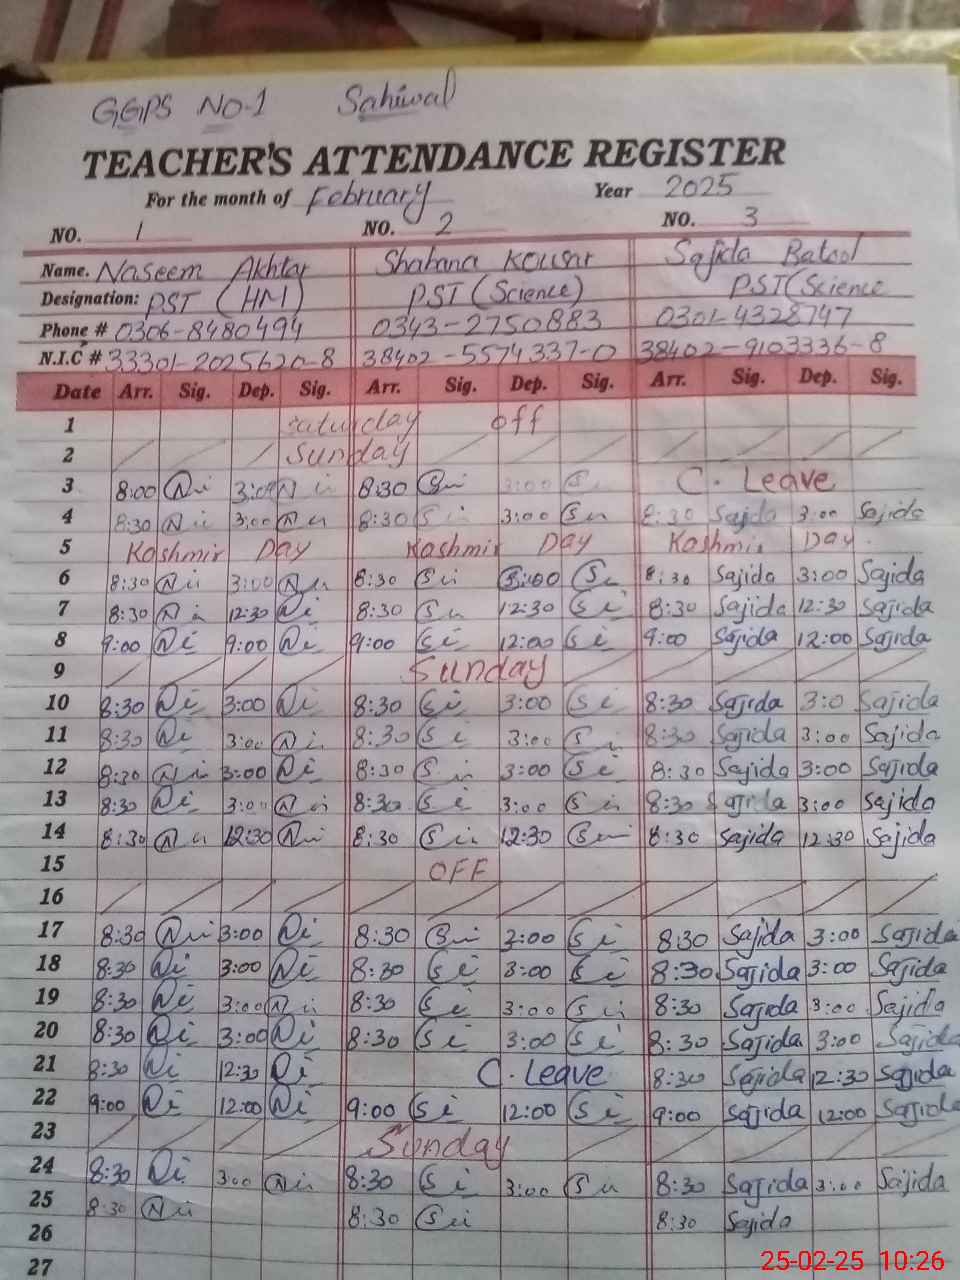 GGPS NO-1 Sahiwal
TEACHER'S ATTENDANCE REGISTER
For the month of February Year 2025
NO. 1 NO. 2 NO. 3
Name. Naseem Akhtar Shabana Kousar Sajida Batool
Designation: PST (HM) PST (Science) PST (Science
Phone # 0306-8480494 0343-2750883 0301-4328747
N.I.C # 33301-2025620-8 38402-5574337-0 38402-9103336-8
Date Arr. Sig. Dep. Sig. Arr. Sig. Dep. Sig. Arr. Sig. Dep. Sig.
1 Saturday off
2 Sunday
3 8:00 3:00 8:30 3:00 C. Leave
4 8:30 3:00 8:30 3:00 8:30 Sajida 3:00 Sajida
5 Kashmir Day Kashmir Day Kashmir Day.
6 8:30 3:00 8:30 3:00 8:30 Sajida 3:00 Sajida
7 8:30 12:30 8:30 12:30 8:30 Sajida 12:30 Sajida
8 9:00 9:00 9:00 12:00 9:00 Sajida 12:00 Sajida
9 Sunday
10 8:30 3:00 8:30 3:00 8:30 Sajida 3:0 Sajida
11 8:30 3:00 8:30 3:00 8:30 Sajida 3:00 Sajida
12 8:30 3:00 8:30 3:00 8:30 Sajida 3:00 Sajida
13 8:30 3:00 8:30 3:00 8:30 Sajida 3:00 Sajida
14 8:30 12:30 8:30 12:30 8:30 Sajida 12:30 Sajida
15 OFF
16
17 8:30 3:00 8:30 3:00 8:30 Sajida 3:00 Sajida
18 8:30 3:00 8:30 3:00 8:30 Sajida 3:00 Sajida
19 8:30 3:00 8:30 3:00 8:30 Sajida 3:00 Sajida
20 8:30 3:00 8:30 3:00 8:30 Sajida 3:00 Sajida
21 8:30 12:30 C. Leave 8:30 Sajida 12:30 Sajida
22 9:00 12:00 9:00 12:00 9:00 Sajida 12:00 Sajida
23 Sunday
24 8:30 3:00 8:30 3:00 8:30 Sajida 3:00 Sajida
25 8:30 8:30 8:30 Sajida
26
27
25-02-25 10:26